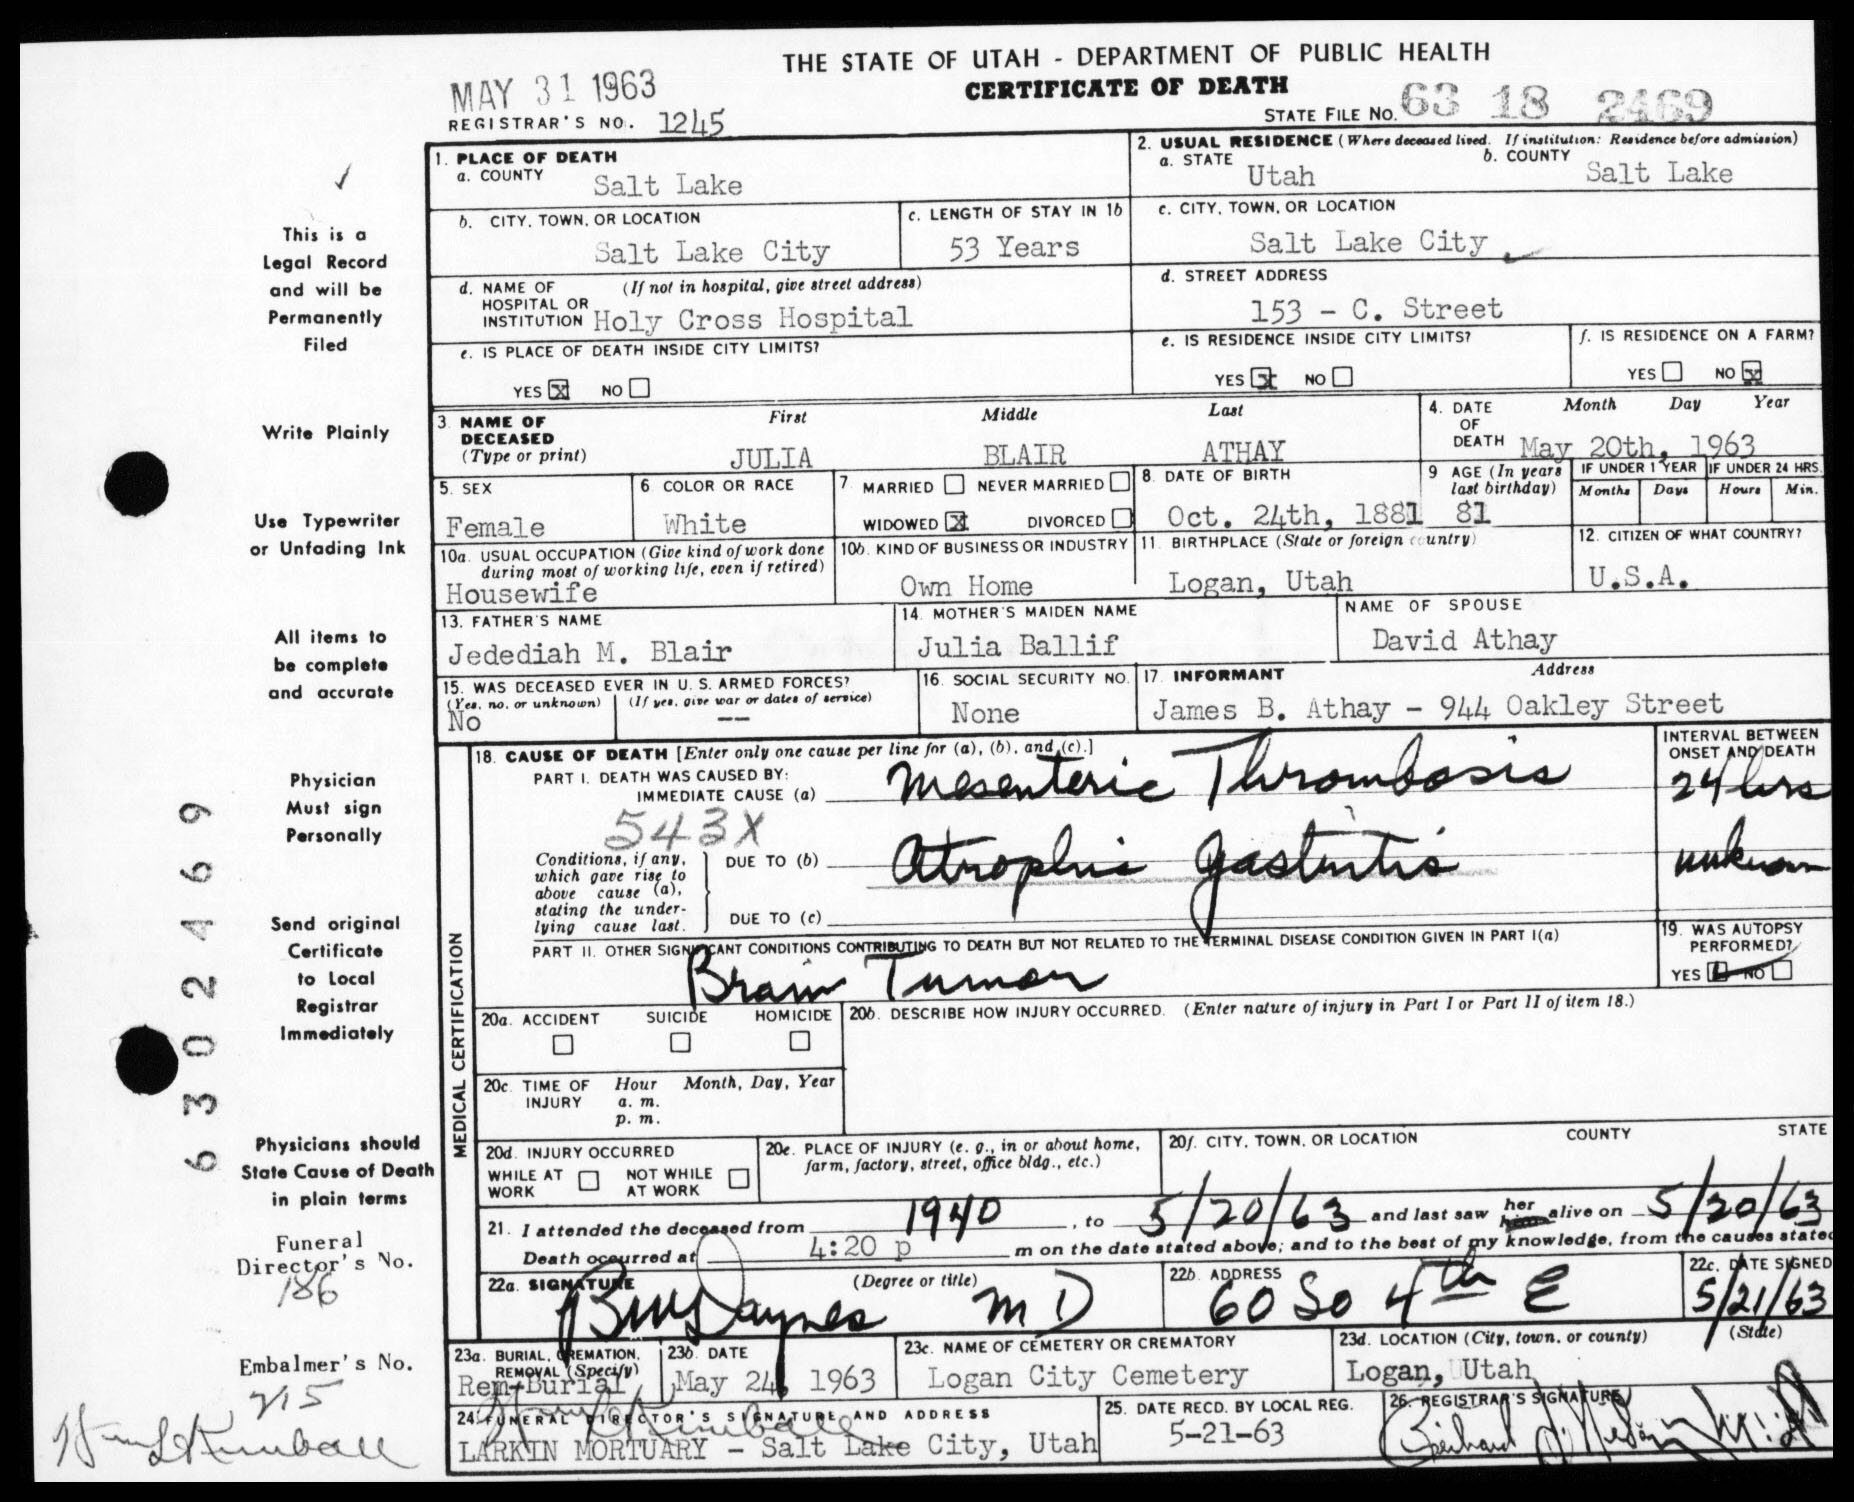 THE STATE OF UTAH - DEPARTMENT OF PUBLIC HEALTH
CERTIFICATE OF DEATH
MAY 31 1963
REGISTRAR'S NO. 1245
STATE FILE NO. 63 18 2469
This is a
Legal Record
and will be
Permanently
Filed
Write Plainly
Use Typewriter
or Unfading Ink
All items to
be complete
and accurate
Physician
Must sign
Personally
Send original
Certificate
to Local
Registrar
Immediately
Physicians should
State Cause of Death
in plain terms
Funeral
Director's No.
186
Embalmer's No.
215
6302469
1. PLACE OF DEATH
a. COUNTY Salt Lake
2. USUAL RESIDENCE (Where deceased lived. If institution: Residence before admission)
a. STATE Utah b. COUNTY Salt Lake
b. CITY, TOWN, OR LOCATION Salt Lake City
c. LENGTH OF STAY IN 1b 53 Years
c. CITY, TOWN, OR LOCATION Salt Lake City
d. NAME OF HOSPITAL OR INSTITUTION (If not in hospital, give street address) Holy Cross Hospital
d. STREET ADDRESS 153 - C. Street
e. IS PLACE OF DEATH INSIDE CITY LIMITS? YES X NO
e. IS RESIDENCE INSIDE CITY LIMITS? YES X NO
f. IS RESIDENCE ON A FARM? YES NO X
3. NAME OF DECEASED (Type or print) First Middle Last
JULIA BLAIR ATHAY
4. DATE OF DEATH Month Day Year
May 20th, 1963
5. SEX Female
6. COLOR OR RACE White
7. MARRIED NEVER MARRIED
WIDOWED X DIVORCED
8. DATE OF BIRTH Oct. 24th, 1881
9 AGE (In years last birthday) 81
IF UNDER 1 YEAR Months Days
IF UNDER 24 HRS. Hours Min.
10a. USUAL OCCUPATION (Give kind of work done during most of working life, even if retired) Housewife
10b. KIND OF BUSINESS OR INDUSTRY Own Home
11. BIRTHPLACE (State or foreign country) Logan, Utah
12. CITIZEN OF WHAT COUNTRY? U.S.A.
13. FATHER'S NAME Jedediah M. Blair
14. MOTHER'S MAIDEN NAME Julia Ballif
NAME OF SPOUSE David Athay
15. WAS DECEASED EVER IN U. S. ARMED FORCES? (Yes, no, or unknown) No (If yes, give war or dates of service) --
16. SOCIAL SECURITY NO. None
17. INFORMANT Address
James B. Athay - 944 Oakley Street
MEDICAL CERTIFICATION
18. CAUSE OF DEATH [Enter only one cause per line for (a), (b), and (c).]
INTERVAL BETWEEN ONSET AND DEATH
PART I. DEATH WAS CAUSED BY:
IMMEDIATE CAUSE (a) Mesenteric Thrombosis 24 hrs
543X
Conditions, if any, which gave rise to above cause (a), stating the underlying cause last.
DUE TO (b) Atrophic Gastritis unknown
DUE TO (c)
PART II. OTHER SIGNIFICANT CONDITIONS CONTRIBUTING TO DEATH BUT NOT RELATED TO THE TERMINAL DISEASE CONDITION GIVEN IN PART I(a)
Brain Tumor
19. WAS AUTOPSY PERFORMED? YES NO
20a. ACCIDENT SUICIDE HOMICIDE
20b. DESCRIBE HOW INJURY OCCURRED. (Enter nature of injury in Part I or Part II of item 18.)
20c. TIME OF INJURY Hour Month, Day, Year
a. m.
p. m.
20d. INJURY OCCURRED
WHILE AT WORK NOT WHILE AT WORK
20e. PLACE OF INJURY (e. g., in or about home, farm, factory, street, office bldg., etc.)
20f. CITY, TOWN, OR LOCATION COUNTY STATE
21. I attended the deceased from 1940, to 5/20/63 and last saw her him alive on 5/20/63
Death occurred at 4:20 p m on the date stated above; and to the best of my knowledge, from the causes stated
22a. SIGNATURE (Degree or title) Daynes M D
22b. ADDRESS 60 So 4th E
22c. DATE SIGNED 5/21/63
23a. BURIAL, CREMATION, REMOVAL (Specify) Rem-Burial
23b. DATE May 24, 1963
23c. NAME OF CEMETERY OR CREMATORY Logan City Cemetery
23d. LOCATION (City, town, or county) (State) Logan, Utah
24. FUNERAL DIRECTOR'S SIGNATURE AND ADDRESS
LARKIN MORTUARY - Salt Lake City, Utah
25. DATE RECD. BY LOCAL REG. 5-21-63
26. REGISTRAR'S SIGNATURE